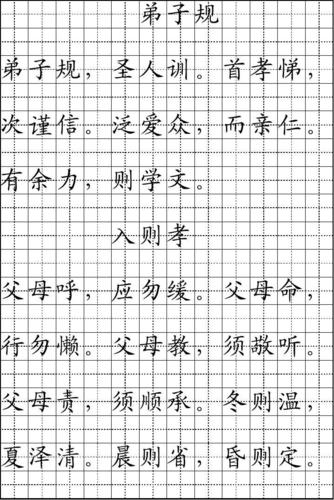 弟子规
弟子规，圣人训。首孝悌，
次谨信。泛爱众，而亲仁。
有余力，则学文。
入则孝
父母呼，应勿缓。父母命，
行勿懒。父母教，须敬听。
父母责，须顺承。冬则温，
夏泽清。晨则省，昏则定。